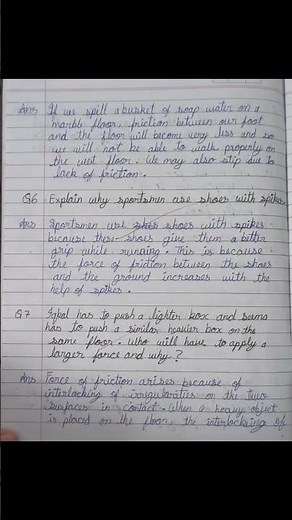 Ans If we spill a bucket of soap water on a
marble floor, friction between our foot
and the floor will become very less and so
we will not be able to walk properly on
the wet floor. We may also slip due to
lack of friction.
Q6 Explain why sportsmen use shoes with spikes
Ans Sportsmen use shoes with spikes
because these shoes give them a better
grip while running. This is because
the force of friction between the shoes
and the ground increases with the
help of spikes.
Q7 Iqbal has to push a lighter box and seema
has to push a similar heavier box on the
same floor. Who will have to apply a
larger force and why?
Ans Force of friction arises because of
interlocking of irregularities on the two
surfaces in contact. When a heavy object
is placed on the floor, the interlocking of